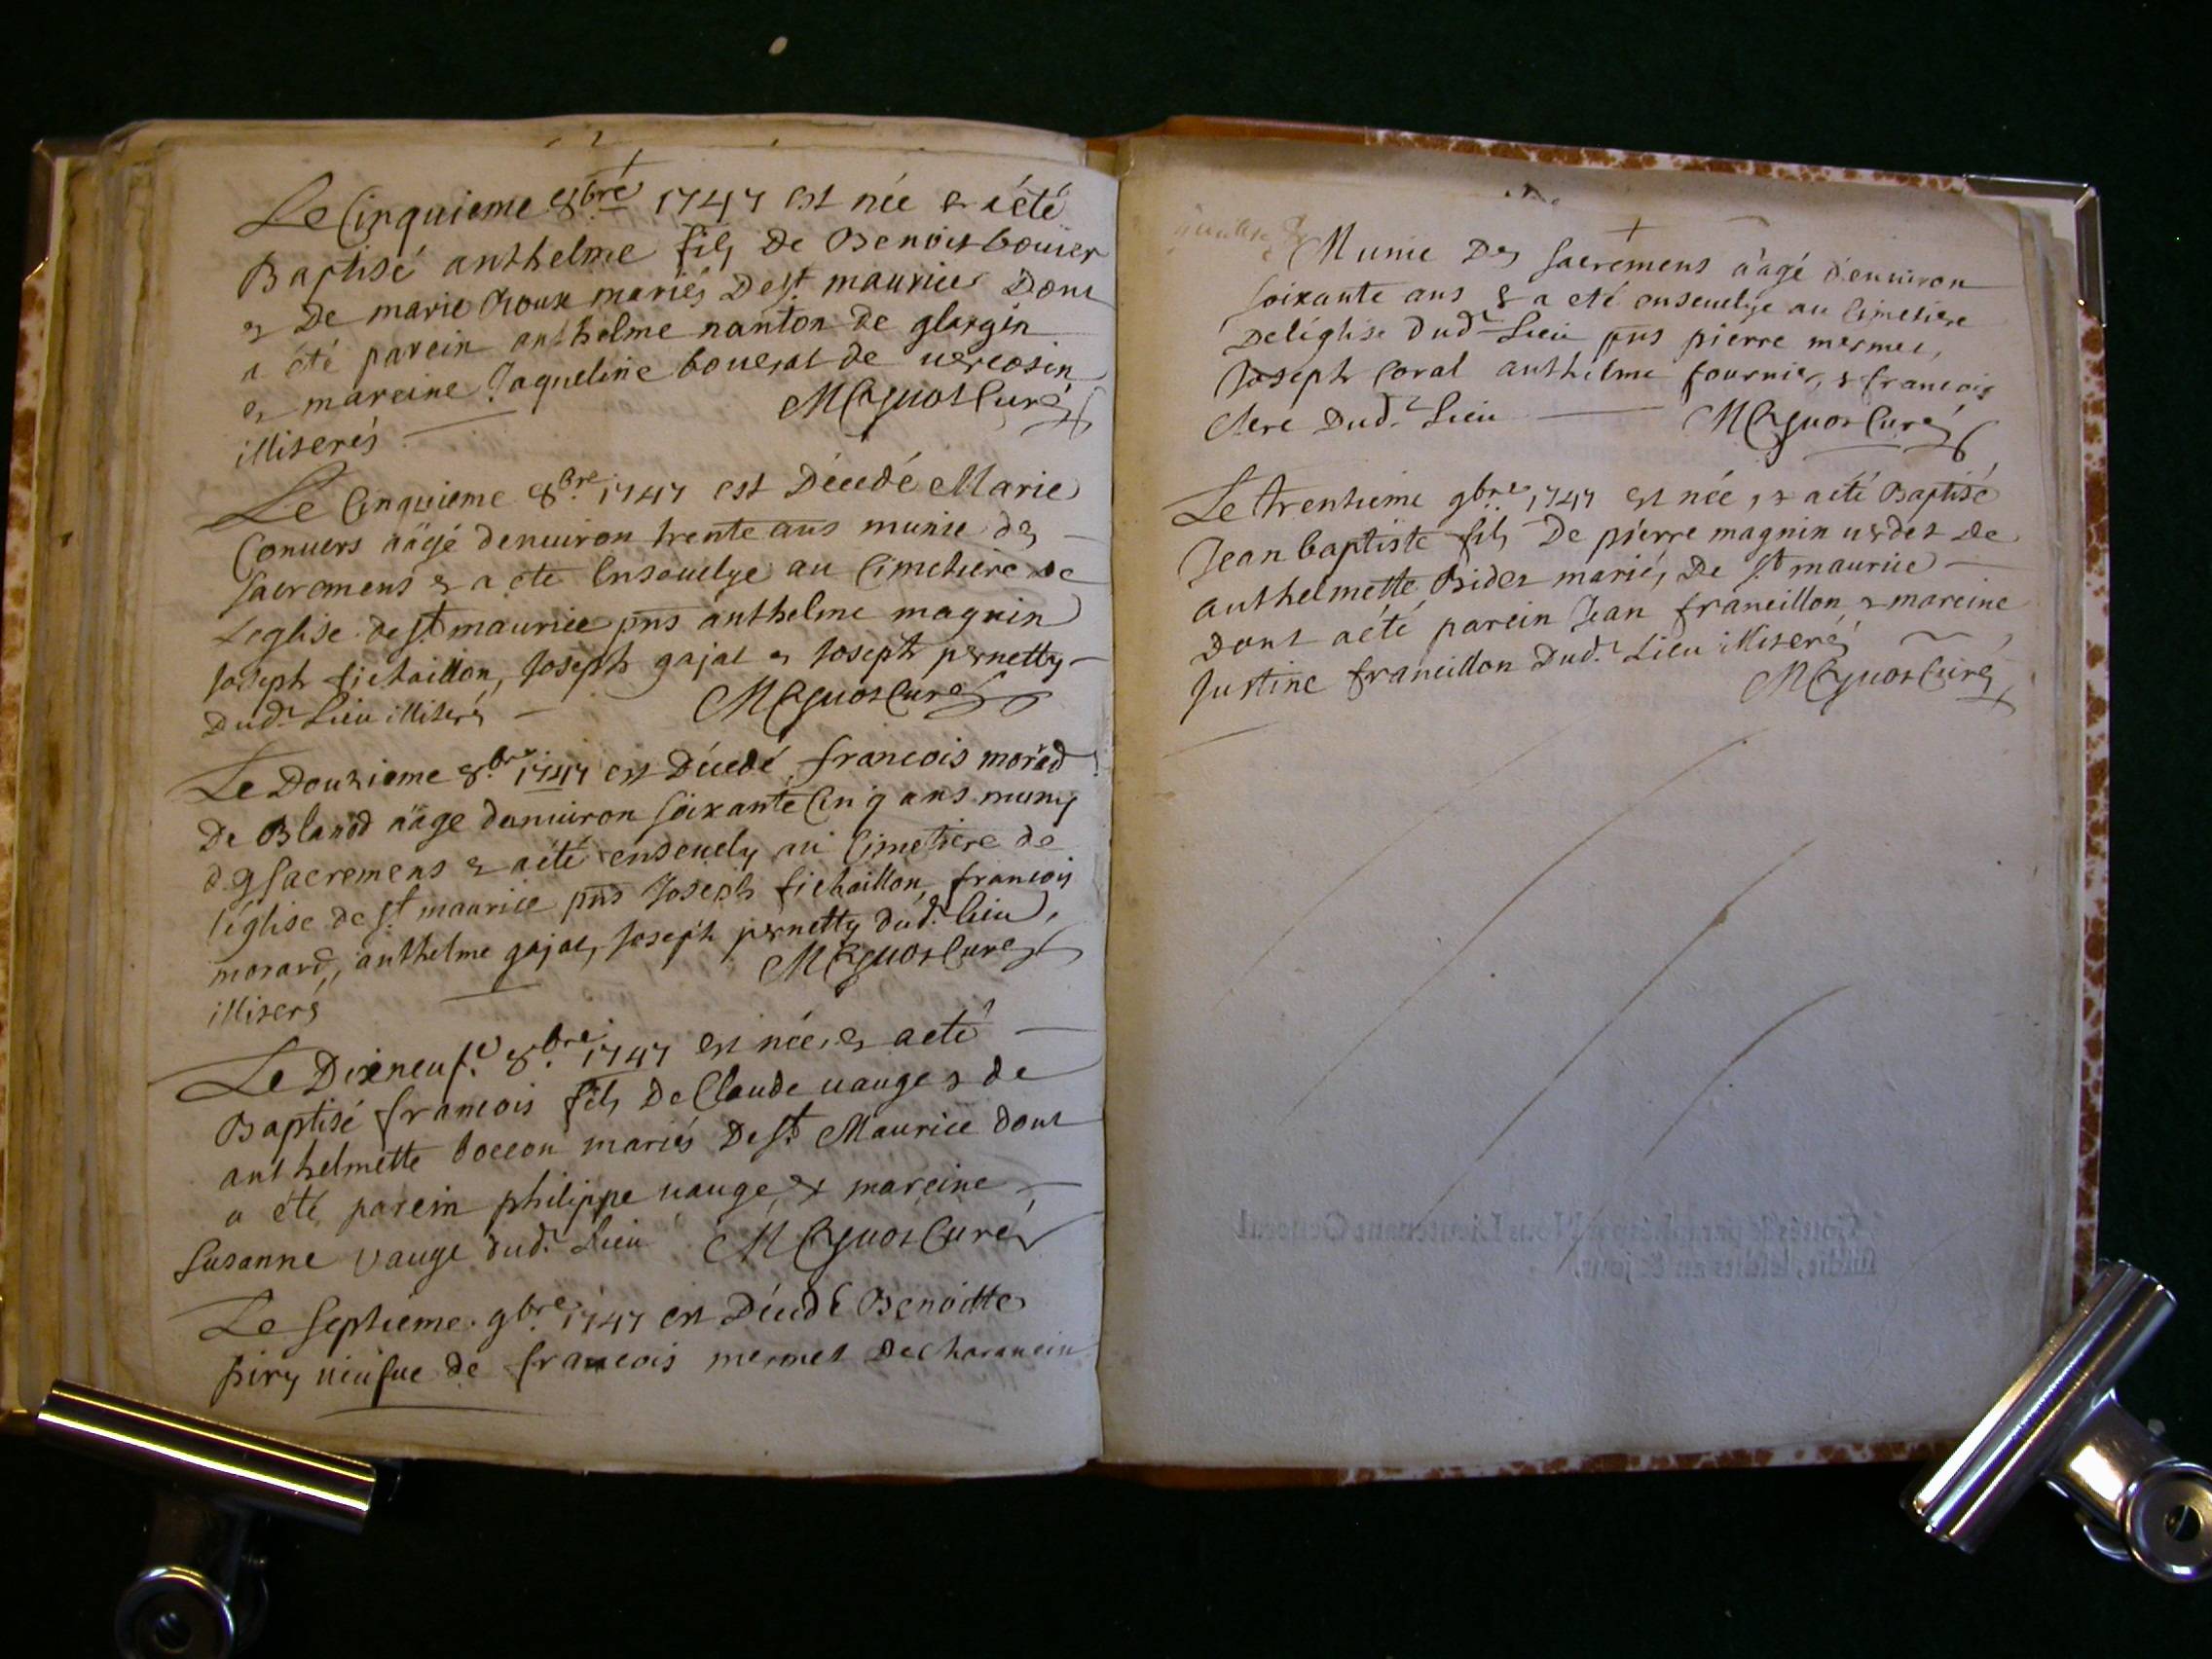 Le Cinquieme 8bre 1747 est née & a été
Baptisé anthelme fils de Benoit bouier
& De marie Roux mariés De st maurice Dont
a été parein anthelme nanton de glargin
& mareine Jaqueline bouerat de uercosin
illiserés M Cyuot Curé
Le Cinquieme 8bre 1747 est Décédé Marie
Conuers aâgé denuiron trente ans munie des
sacremens & a eté Ensouelye au Cimetiere de
Leglise de st maurice pns anthelme magnin
Joseph fichaillon, Joseph gajat & Joseph pernetty
Dudt Lieu illiserés M Cyuot Curé
Le Douzieme 8bre 1747 est Décédé francois morad
De Bland aâge denuiron soixante Cinq ans muny
des sacremens & a été enseuely au Cimetiere de
l'église de st maurice pns Joseph fichaillon, francois
morard, anthelme gajat, Joseph pernetty dudt lieu,
illiserés M Cyuot Curé
Le Dixneufe 8bre 1747 est née, & a eté
Baptisé francois fils De Claude uauge & de
anthelmette boccon mariés De st Maurice dont
a été parein philippe uauge & mareine
Susanne vauge dudt Lieu M Cyuot Curé
Le septieme 9bre 1747 est Décédé Benoitte
piry uieufue de francois mermet De charancin
Munie Des sacremens aâgé d'enuiron
soixante ans & a eté enseuelye au Cimetiere
De l'église dudt Lieu pns pierre mermet,
Joseph Coral anthelme fournier, & francois
Clere Dudt Lieu M Cyuot Curé
Le trentieme 9bre 1747 est née, & a été Baptisé
Jean baptiste fils De pierre magnin uerdet de
anthelmette Bidet mariés De st maurice
Dont a été parein Jean francillon & mareine
Justine francillon Dudt Lieu illiserés
M Cyuot Curé
Cottés & paraphés par Nous Lieutenant General
susdit, lesdits an & jour.